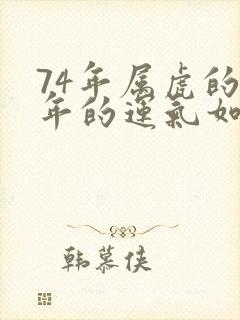 74年属虎的
年的运气如
韩慕侠